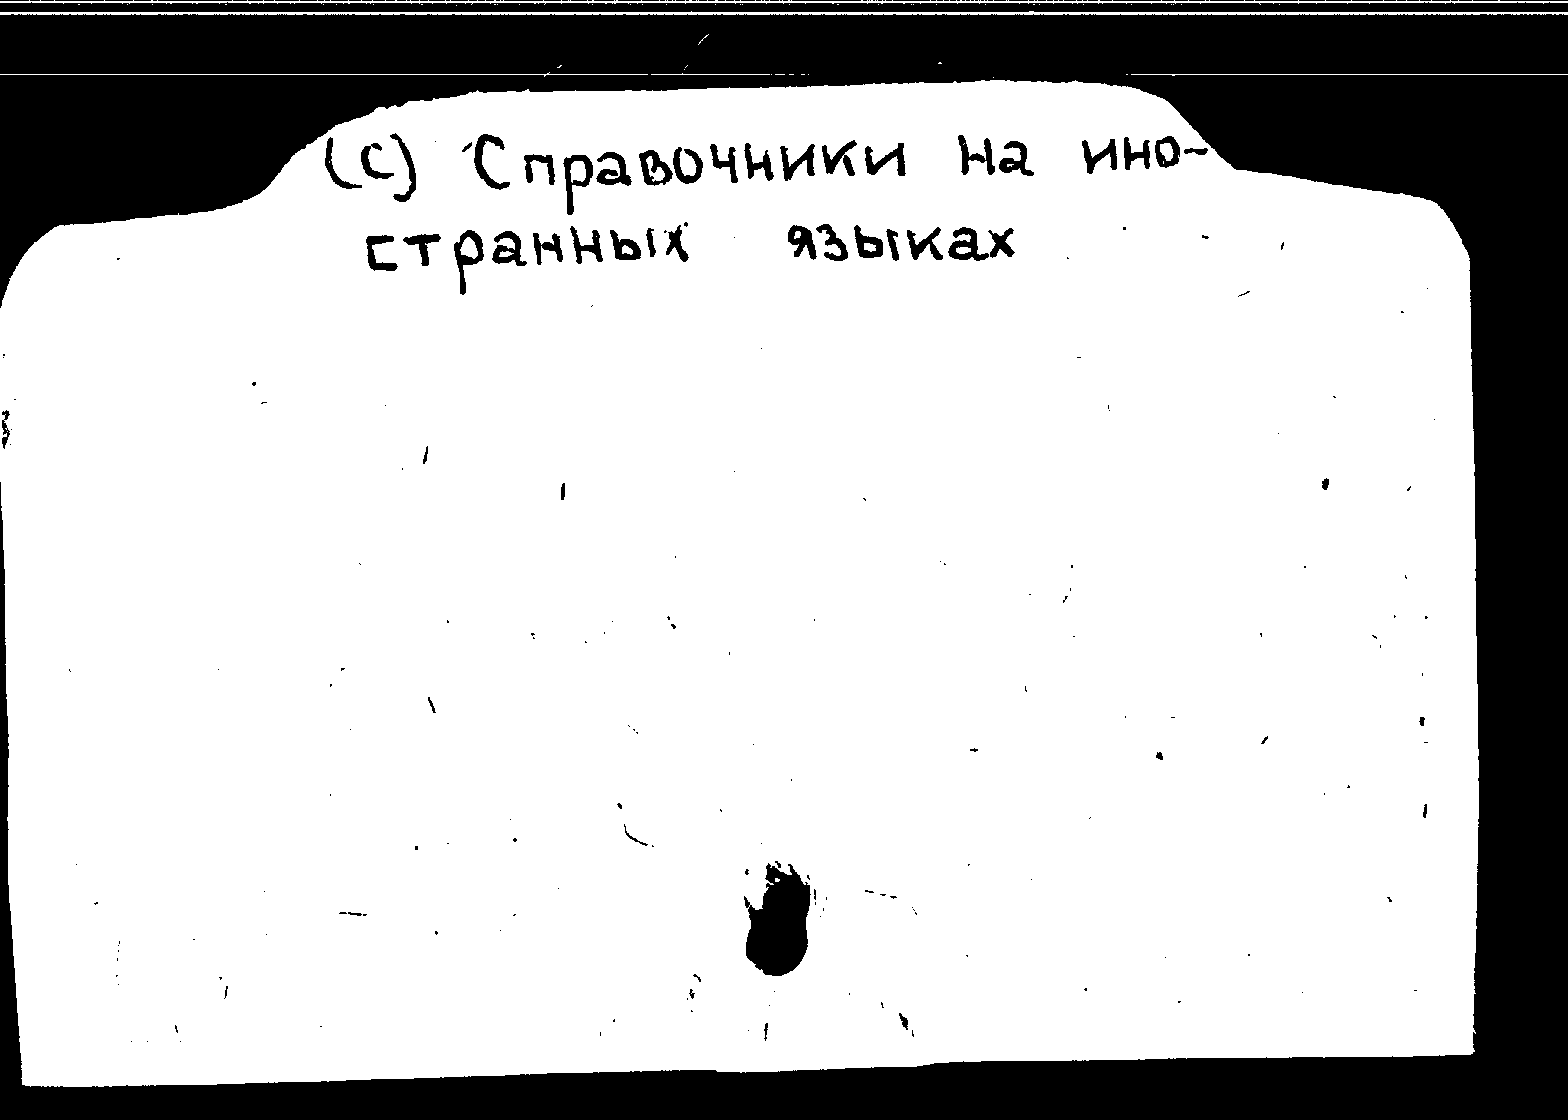 (С) Справочники на ино-
странных языках